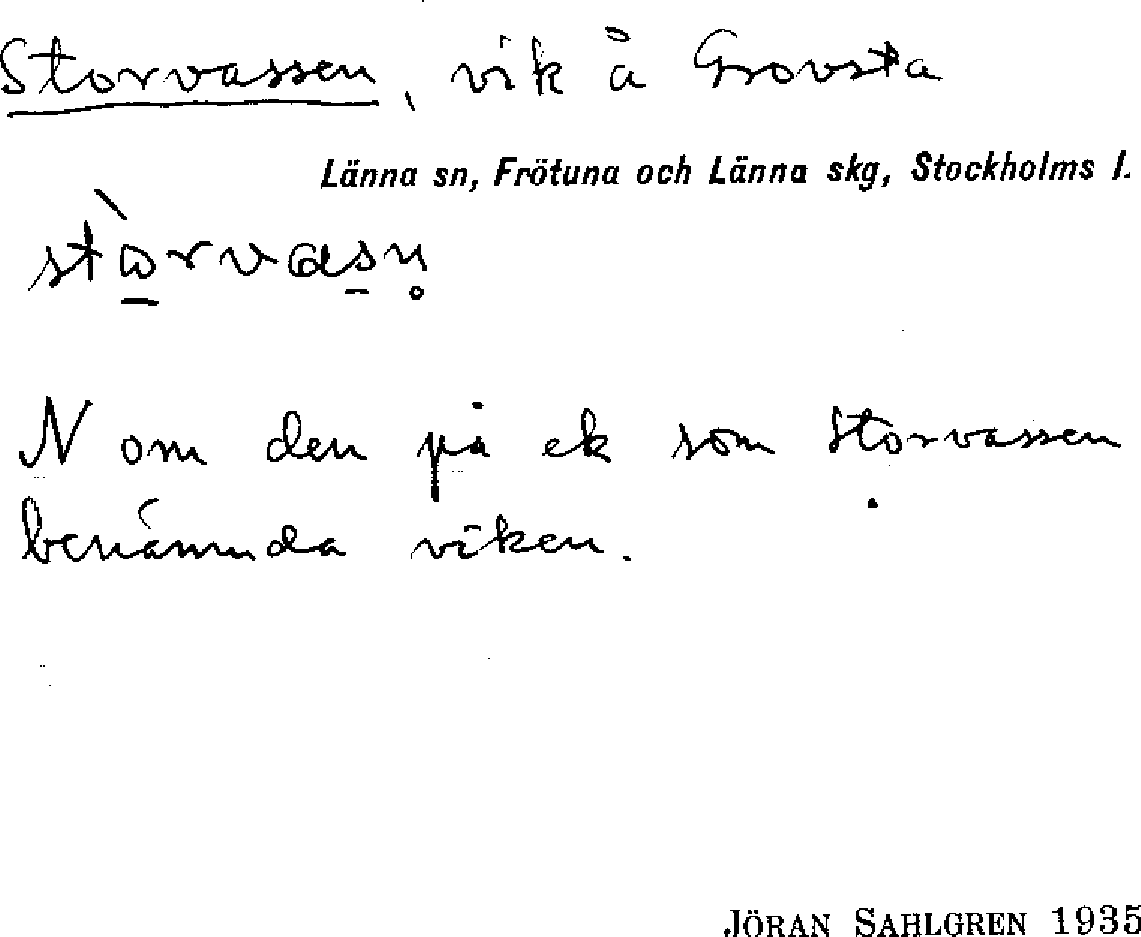 Storvassen, vik å Grovsta
Länna sn, Frötuna och Länna skg, Stockholms l.
stòrvasn̥
N om den på ek som Storvassen
benämnda viken.
JÖRAN SAHLGREN 1935